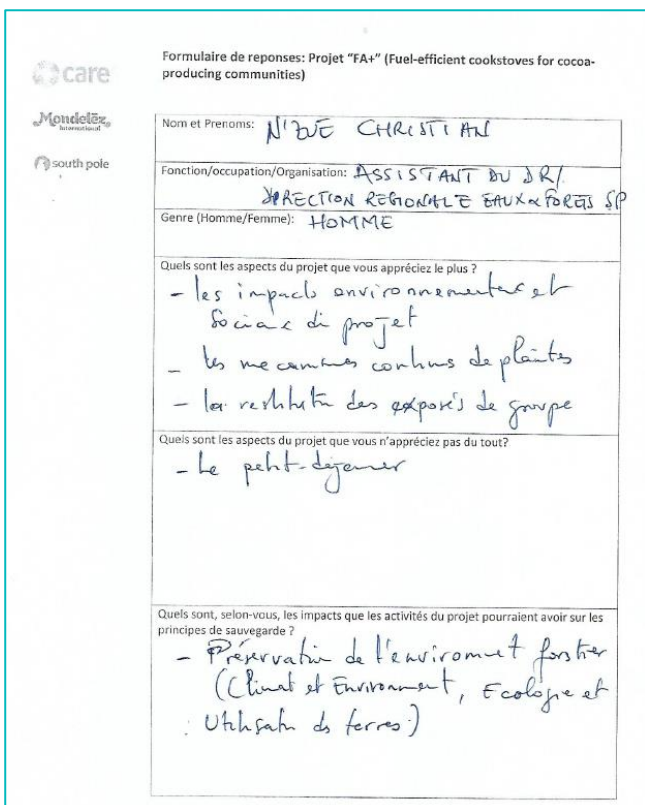 care
Mondelēz
International
south pole
Formulaire de reponses: Projet "FA+" (Fuel-efficient cookstoves for cocoa-
producing communities)
Nom et Prenoms: N'ZUE CHRISTIAN
Fonction/occupation/Organisation: ASSISTANT DU DR/
DIRECTION REGIONALE EAUX & FORETS SP
Genre (Homme/Femme): HOMME
Quels sont les aspects du projet que vous appréciez le plus ?
- les impacts environnementaux et
Sociaux du projet
- les continus de plaintes
- la restitution des exposés de groupe
Quels sont les aspects du projet que vous n'appréciez pas du tout?
- Le petit-déjeuner
Quels sont, selon-vous, les impacts que les activités du projet pourraient avoir sur les
principes de sauvegarde ?
- Préservation de l'environnement forestier
(Climat et Environnement, Ecologie et
Utilisation des terres)